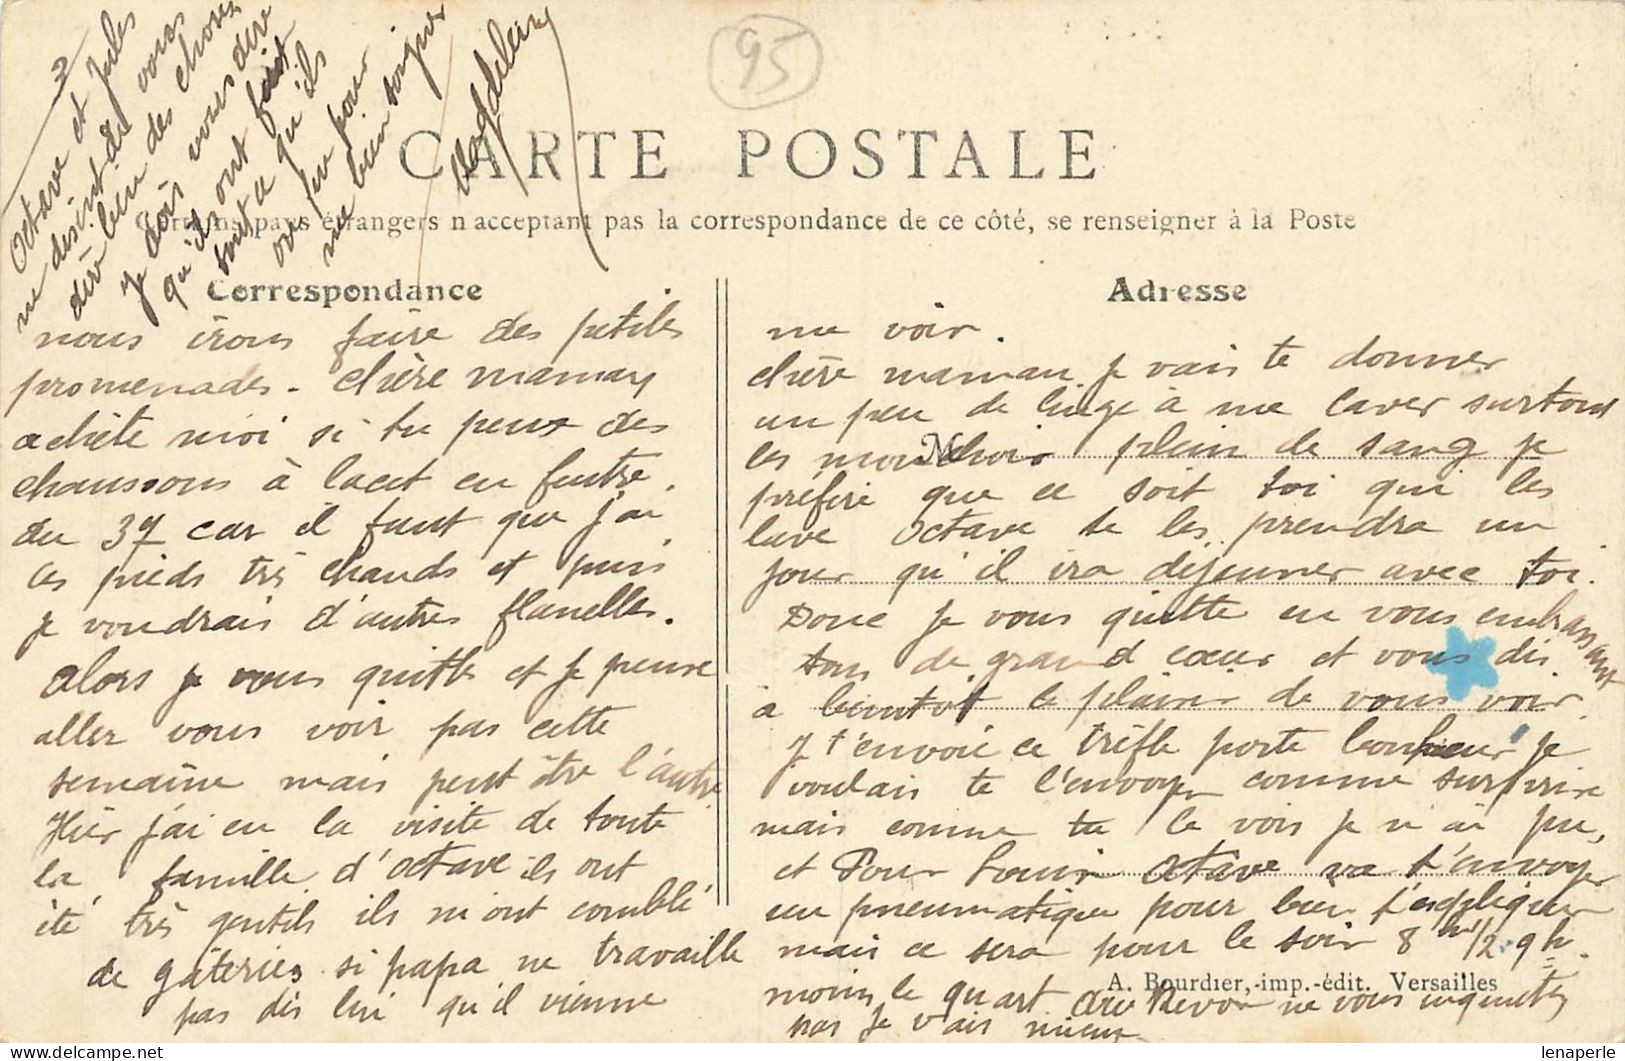 95
Octave et Jules
me disent de vous
dire bien des choses
je dois vous dire
qu'ils ont fait
tout ce qu'ils
ont pu pour
me bien soigner
CARTE POSTALE
Certains pays étrangers n'acceptant pas la correspondance de ce côté, se renseigner à la Poste
Correspondance
nous irons faire des petites
promenades. Chère maman
achète moi si tu peux des
chaussons à lacet en feutre.
du 37 car il faut que j'ai
les pieds très chauds et puis
je voudrais d'autres flanelles.
Alors je vous quitte et je pense
aller vous voir pas cette
semaine mais peut être l'autre
Hier j'ai eu la visite de toute
la famille d'Octave ils ont
été très gentils ils m'ont comblé
de gâteries si papa ne travaille
pas dis lui qu'il vienne
Adresse
me voir.
chère maman je vais te donner
un peu de linge à me laver surtout
les mouchoir plein de sang je
préfère que ce soit toi qui les
lave Octave te les prendra un
jour qu'il ira déjeuner avec toi.
Donc je vous quitte en vous embrassant
tous de grand cœur et vous dis
à bientôt le plaisir de vous voir.
Je t'envoie ce trèfle porte bonheur je
voulais te l'envoyer comme surprise
mais comme tu le vois je n'ai pu,
et Pour Octave va t'envoyer
un pneumatique pour bien t'expliquer
mais ce sera pour le soir 8 h 1/2 9 h.
moins le quart Au Revoir ne vous inquiétez
pas je vais mieux
A. Bourdier, imp.-édit. Versailles
lenaperle